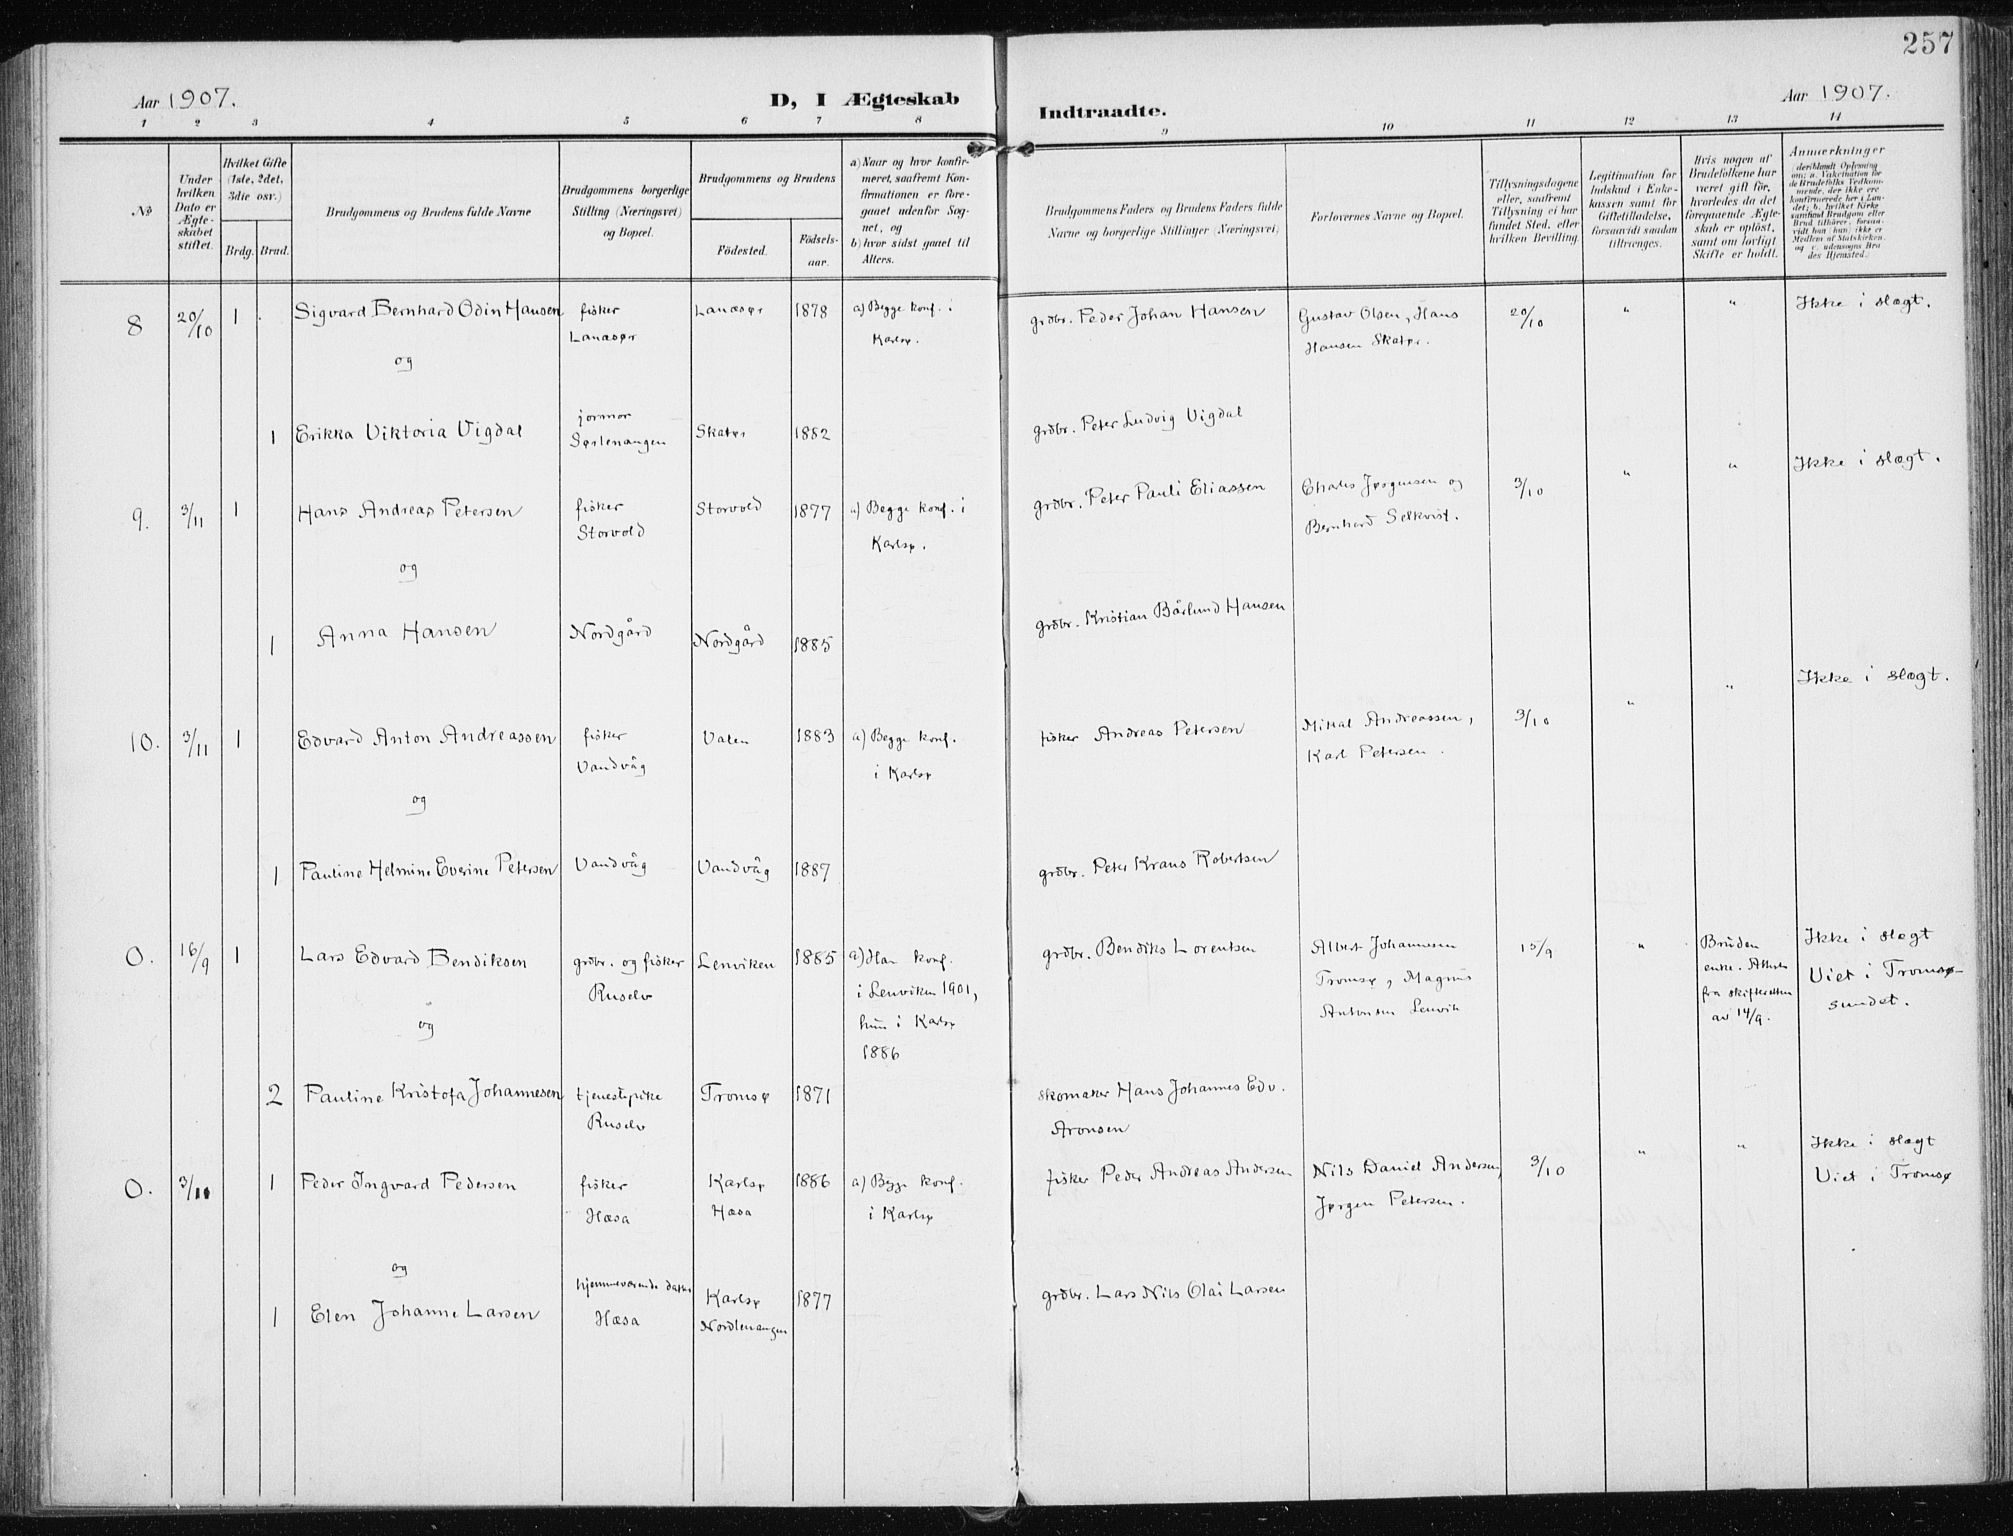 257
Aar 1907.
D, I Ægteskab
Indtraadte.
Aar 1907.
1 2 3 4 5 6 7 8 9 10 11 12 13 14
No
Under hvilken Dato er Ægteskabet stiftet.
Hvilket Gifte (1ste, 2det, 3die osv.)
Brdg. Brud.
Brudgommens og Brudens fulde Navne
Brudgommens borgerlige Stilling (Næringsvei) og Bopæl.
Brudgommens og Brudens
Fødested.
Fødsels-
aar.
a) Naar og hvor konfir-
meret, saafremt Kon-
firmationen er fore-
gaaet udenfor Sog-
net, og
b) hvor sidst gaaet til
Alters.
Brudgommens Faders og Brudens Faders fulde
Navne og borgerlige Stillinger (Næringsvei)
Forlovernes Navne og Bopæl.
Tillysningsdagene
eller, saafremt
Tillysning ei har
fundet Sted, efter
hvilken Bevilling.
Legitimation for
Indskud i Enke-
kassen samt for
Giftetilladelse,
forsaavidt saadan
tiltrænges.
Hvis nogen af
Brudefolkene har
været gift før,
hvorledes da det
foregaaende Ægte-
skab er opløst,
samt om lovligt
Skifte er holdt.
Anmærkninger
8 20/10 1 Sigvard Bernhard Odin Hansen fisker Lanæsør Lanæsør 1878 a) Begge konf. i Karlsø. grdbr. Peder Johan Hansen Gustav Olsen, Hans Hansen Skatør. 20/10 " " Ikke i slægt.
og
1 Erikka Viktoria Vigdal jormor Sørlenangen Skatør 1882 grdbr. Peter Ludvig Vigdal
9. 3/11 1 Hans Andreas Petersen fisker Storvold Storvold 1877 a) Begge konf. i Karlsø. grdbr. Peter Pauli Eliassen Charles Jørgensen og Bernhard Selkvist. 3/10 " " Ikke i slægt.
og
1 Anna Hansen Nordgård Nordgård 1885 grdbr. Kristian Bårlund Hansen
10. 3/11 1 Edvard Anton Andreassen fisker Vandvåg Valen 1883 a) Begge konf. i Karlsø fisker Andreas Petersen Mikal Andreassen, Karl Petersen. 3/10 " " Ikke i slægt.
og
1 Pauline Helmine Everine Petersen Vandvåg Vandvåg 1887 grdbr. Peter Kraus Robertsen
0. 16/9 1 Lars Edvard Bendiksen grdbr. og fisker Ruselv Lenviken 1885 a) Han konf. i Lenviken 1901, hun i Karlsø 1886 grdbr. Bendiks Lorentsen Albert Johannesen Tromsø, Magnus Antonsen Lenvik 15/9 " Bruden enke. Attest fra skifteretten av 14/9. Ikke i slægt Viet i Tromsø-
sundet.
og
2 Pauline Kristofa Johannesen tjenestepike Ruselv Tromsø 1871 skomaker Hans Johannes Edv. Aronsen
0. 3/11 1 Peder Ingvard Pedersen fisker Hæsa Karlsø Hæsa 1886 a) Begge konf. i Karlsø fisker Peder Andreas Andersen Nils Daniel Andersen, Jørgen Petersen. 3/10 " " Ikke i slægt Viet i Tromsø
og
1 Elen Johanne Larsen hjemmeværende datter Hæsa Karlsø Nordlenangen 1877 grdbr. Lars Nils Olai Larsen